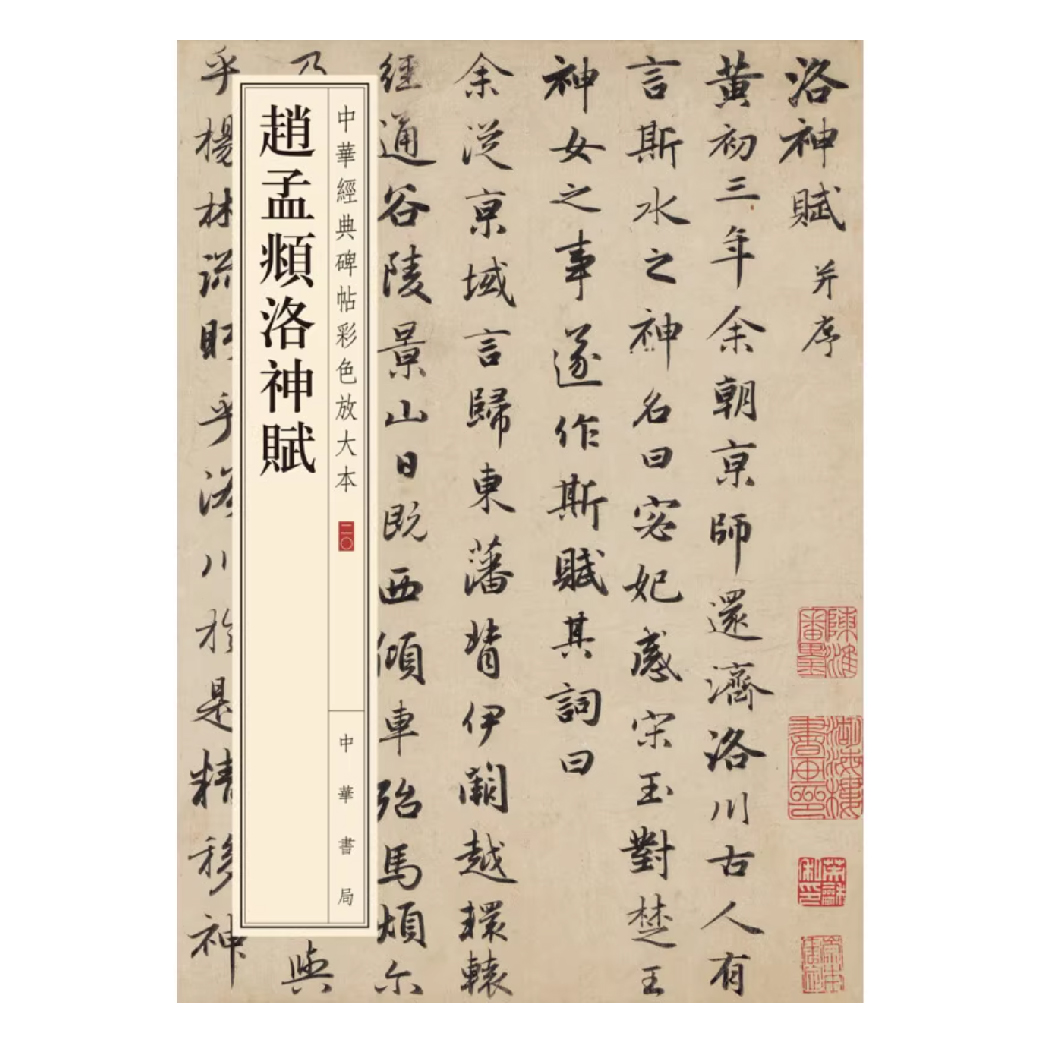 洛神賦 并序
黄初三年余朝亰師還濟洛川古人有
言斯水之神名曰宓妃感宋玉對楚王
神女之事遂作斯賦其詞曰
余從亰域言歸東藩背伊闕越轘轅
經通谷陵景山日既西傾車殆馬煩尔
中華經典碑帖彩色放大本 二〇
中華書局
趙孟頫洛神賦
乃
與
乎楊林流眄乎洛川於是精移神